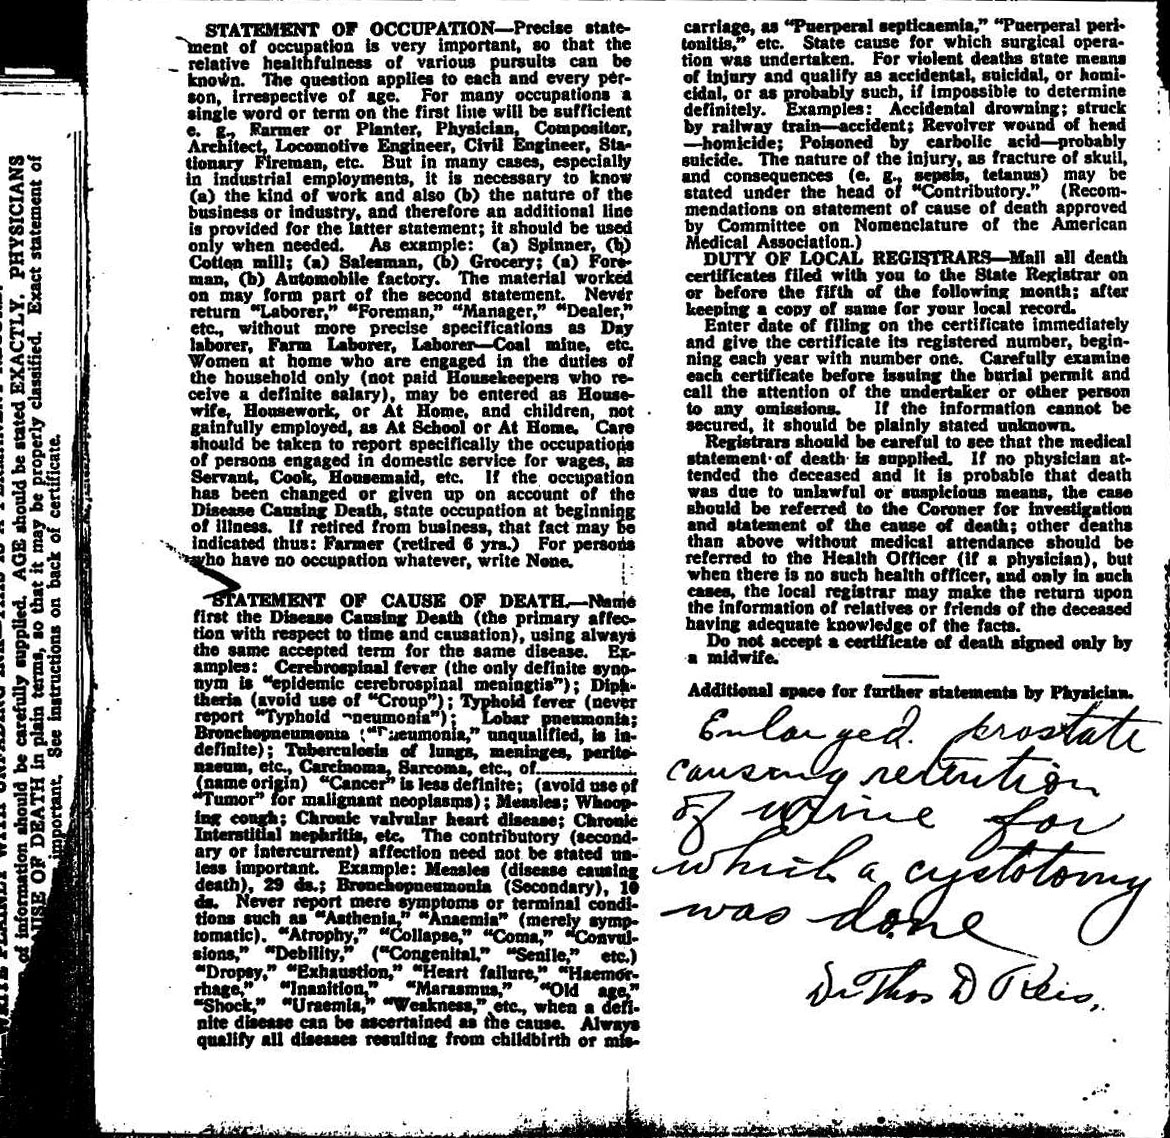 STATEMENT OF OCCUPATION—Precise state-
ment of occupation is very important, so that the
relative healthfulness of various pursuits can be
known. The question applies to each and every per-
son, irrespective of age. For many occupations a
single word or term on the first line will be sufficient
e. g., Farmer or Planter, Physician, Compositor,
Architect, Locomotive Engineer, Civil Engineer, Sta-
tionary Fireman, etc. But in many cases, especially
in industrial employments, it is necessary to know
(a) the kind of work and also (b) the nature of the
business or industry, and therefore an additional line
is provided for the latter statement; it should be used
only when needed. As example: (a) Spinner, (b)
Cotton mill; (a) Salesman, (b) Grocery; (a) Fore-
man, (b) Automobile factory. The material worked
on may form part of the second statement. Never
return "Laborer," "Foreman," "Manager," "Dealer,"
etc., without more precise specifications as Day
laborer, Farm Laborer, Laborer—Coal mine, etc.
Women at home who are engaged in the duties of
the household only (not paid Housekeepers who re-
ceive a definite salary), may be entered as House-
wife, Housework, or At Home, and children, not
gainfully employed, as At School or At Home. Care
should be taken to report specifically the occupations
of persons engaged in domestic service for wages, as
Servant, Cook, Housemaid, etc. If the occupation
has been changed or given up on account of the
Disease Causing Death, state occupation at beginning
of illness. If retired from business, that fact may be
indicated thus: Farmer (retired 6 yrs.) For persons
who have no occupation whatever, write None.
STATEMENT OF CAUSE OF DEATH.—Name
first the Disease Causing Death (the primary affec-
tion with respect to time and causation), using always
the same accepted term for the same disease. Ex-
amples: Cerebrospinal fever (the only definite syno-
nym is "epidemic cerebrospinal meningtis"); Diph-
theria (avoid use of "Croup"); Typhoid fever (never
report "Typhoid pneumonia"); Lobar pneumonia;
Bronchopneumonia ("Pneumonia," unqualified, is in-
definite); Tuberculosis of lungs, meninges, perito-
naeum, etc., Carcinoma, Sarcoma, etc., of..............
(name origin) "Cancer" is less definite; (avoid use of
"Tumor" for malignant neoplasms); Measles; Whoop-
ing cough; Chronic valvular heart disease; Chronic
Interstitial nephritis, etc. The contributory (second-
ary or intercurrent) affection need not be stated un-
less important. Example: Measles (disease causing
death), 29 ds.; Bronchopneumonia (Secondary), 10
ds. Never report mere symptoms or terminal condi-
tions such as "Asthenia," "Anaemia" (merely symp-
tomatic). "Atrophy," "Collapse," "Coma," "Convul-
sions," "Debility," ("Congenital," "Senile," etc.)
"Dropsy," "Exhaustion," "Heart failure," "Haemor-
rhage," "Inanition," "Marasmus," "Old age,"
"Shock," "Uraemia," "Weakness," etc., when a defi-
nite disease can be ascertained as the cause. Always
qualify all diseases resulting from childbirth or mis-
carriage, as "Puerperal septicaemia," "Puerperal peri-
tonitis," etc. State cause for which surgical opera-
tion was undertaken. For violent deaths state means
of injury and qualify as accidental, suicidal, or homi-
cidal, or as probably such, if impossible to determine
definitely. Examples: Accidental drowning; struck
by railway train—accident; Revolver wound of head
—homicide; Poisoned by carbolic acid—probably
suicide. The nature of the injury, as fracture of skull,
and consequences (e. g., sepsis, tetanus) may be
stated under the head of "Contributory." (Recom-
mendations on statement of cause of death approved
by Committee on Nomenclature of the American
Medical Association.)
DUTY OF LOCAL REGISTRARS—Mail all death
certificates filed with you to the State Registrar on
or before the fifth of the following month; after
keeping a copy of same for your local record.
Enter date of filing on the certificate immediately
and give the certificate its registered number, begin-
ning each year with number one. Carefully examine
each certificate before issuing the burial permit and
call the attention of the undertaker or other person
to any omissions. If the information cannot be
secured, it should be plainly stated unknown.
Registrars should be careful to see that the medical
statement of death is supplied. If no physician at-
tended the deceased and it is probable that death
was due to unlawful or suspicious means, the case
should be referred to the Coroner for investigation
and statement of the cause of death; other deaths
than above without medical attendance should be
referred to the Health Officer (if a physician), but
when there is no such health officer, and only in such
cases, the local registrar may make the return upon
the information of relatives or friends of the deceased
having adequate knowledge of the facts.
Do not accept a certificate of death signed only by
a midwife.
Additional space for further statements by Physician.
Enlarged prostate
causing retention
of urine for
which a cystotomy
was done
Dr Thos D
of information should be carefully supplied. AGE should be stated EXACTLY. PHYSICIANS
OF DEATH in plain terms, so that it may be properly classified. Exact statement of
important. See instructions on back of certificate.